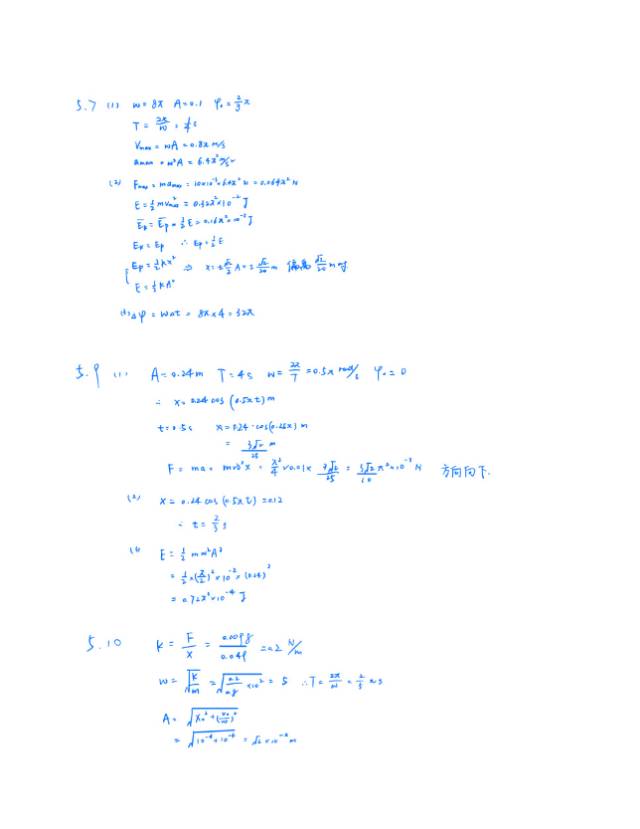 5.7 (1) w=8π A=0.1 φ₀=2/3π
T=2π/w=1/4s
Vmax=wA=0.8π m/s
amax=w²A=6.4π² m/s²
(2) Fmax=mamax=10×10⁻³×6.4π² N=0.064π² N
E=1/2mvmax²=0.32π²×10⁻² J
Ēk=Ēp=1/2E=0.16π²×10⁻² J
Ek=Ep ∴Ep=1/2E
Ep=1/2kx² ⇒ x=±√2/2A=±√2/20m 偏离√2/20m时
E=1/2kA²
Δφ=wΔt=8π×4=32π
5.9 (1) A=0.24m T=4s w=2π/T=0.5π rad/s φ₀=0
∴ x=0.24cos(0.5πt)m
t=0.5s x=0.24·cos(0.25π)m
=3√2/25m
F=ma=mw²x=π²/4×0.01×3√2/25=3√2/10π²×10⁻³N 方向向下.
(2) x=0.24cos(0.5πt)=0.12
∴ t=2/3s
E=1/2mw²A²
=1/2×(π/2)²×10⁻²×(0.24)²
=0.72π²×10⁻⁴ J
5.10 k=F/x=0.0098/0.049=0.2N/m
w=√(k/m)= =5 ∴T=2π/w=2/5πs
A=√(x₀²+(v₀/w)²)
=√(10⁻⁴+10⁻⁴)=√2×10⁻²m